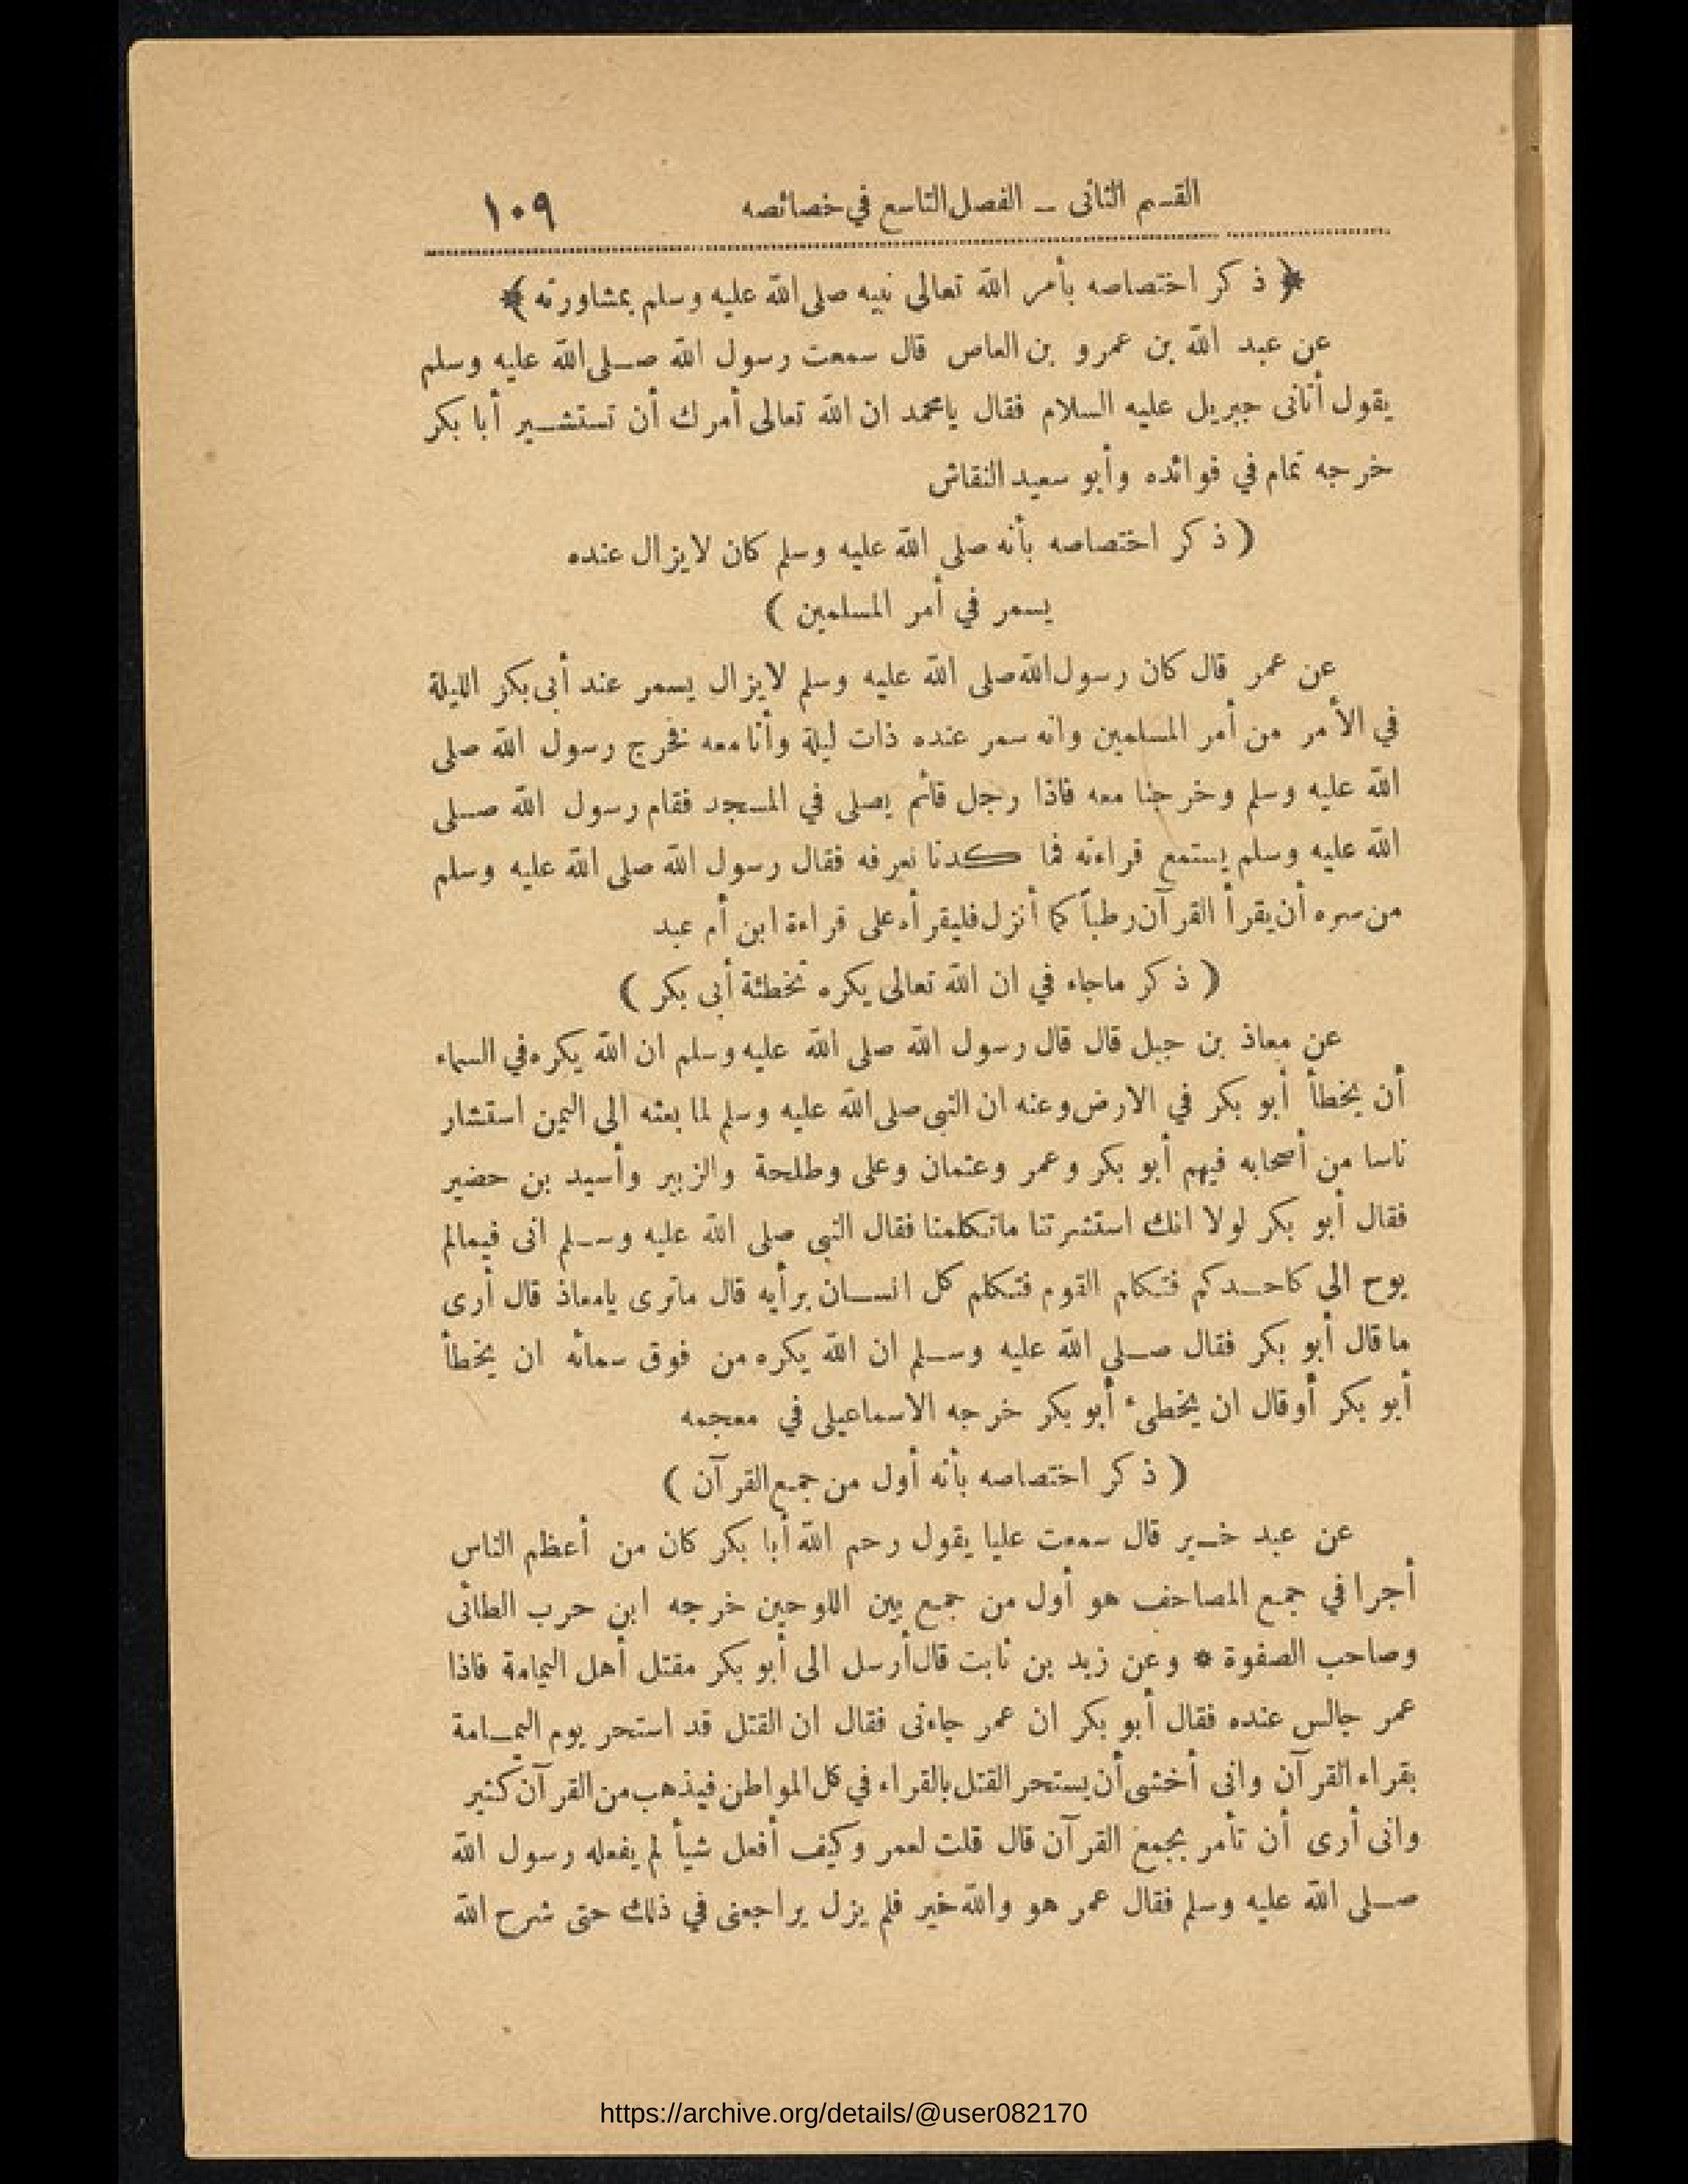 القسم الثانى ــ الفصل التاسع في خصائصه ١٠٩
﴿ ذكر اختصاصه بأمر الله تعالى نبيه صلى الله عليه وسلم بمشاورته ﴾
عن عبد الله بن عمرو بن العاص قال سمعت رسول الله صلى الله عليه وسلم
يقول أتانى جبريل عليه السلام فقال يامحمد ان الله تعالى أمرك أن تستشير أبا بكر
خرجه تمام في فوائده وأبو سعيد النقاش
( ذكر اختصاصه بأنه صلى الله عليه وسلم كان لايزال عنده
يسمر في أمر المسلمين )
عن عمر قال كان رسول الله صلى الله عليه وسلم لايزال يسمر عند أبى بكر الليلة
في الأمر من أمر المسلمين وانه سمر عنده ذات ليلة وأنا معه فخرج رسول الله صلى
الله عليه وسلم وخرجنا معه فاذا رجل قائم يصلى في المسجد فقام رسول الله صلى
الله عليه وسلم يستمع قراءته فما كدنا نعرفه فقال رسول الله صلى الله عليه وسلم
من سره أن يقرأ القرآن رطباً كما أنزل فليقرأه على قراءة ابن أم عبد
( ذكر ماجاء في ان الله تعالى يكره تخطئة أبى بكر )
عن معاذ بن جبل قال قال رسول الله صلى الله عليه وسلم ان الله يكره في السماء
أن يخطأ أبو بكر في الارض وعنه ان النبى صلى الله عليه وسلم لما بعثه الى اليمن استشار
ناسا من أصحابه فيهم أبو بكر وعمر وعثمان وعلى وطلحة والزبير وأسيد بن حضير
فقال أبو بكر لولا انك استشرتنا ماتكلمنا فقال النبى صلى الله عليه وسلم انى فيمالم
يوح الى كاحدكم فتكلم القوم فتكلم كل انسان برأيه قال ماترى يامعاذ قال أرى
ماقال أبو بكر فقال صلى الله عليه وسلم ان الله يكره من فوق سمائه ان يخطأ
أبو بكر أوقال ان يخطىء أبو بكر خرجه الاسماعيلى في معجمه
( ذكر اختصاصه بأنه أول من جمع القرآن )
عن عبد خير قال سمعت عليا يقول رحم الله أبا بكر كان من أعظم الناس
أجرا في جمع المصاحف هو أول من جمع بين اللوحين خرجه ابن حرب الطائى
وصاحب الصفوة * وعن زيد بن ثابت قال أرسل الى أبو بكر مقتل أهل اليمامة فاذا
عمر جالس عنده فقال أبو بكر ان عمر جاءنى فقال ان القتل قد استحر يوم اليمامة
بقراء القرآن وانى أخشى أن يستحر القتل بالقراء في كل المواطن فيذهب من القرآن كثير
وانى أرى أن تأمر بجمع القرآن قال قلت لعمر وكيف أفعل شيأ لم يفعله رسول الله
صلى الله عليه وسلم فقال عمر هو والله خير فلم يزل يراجعنى في ذلك حتى شرح الله
https://archive.org/details/@user082170